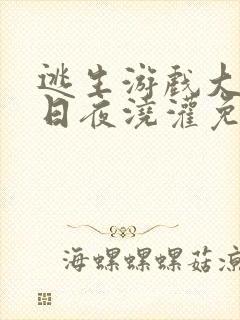 逃生游戏大
日夜浇灌免
海螺螺螺菇凉